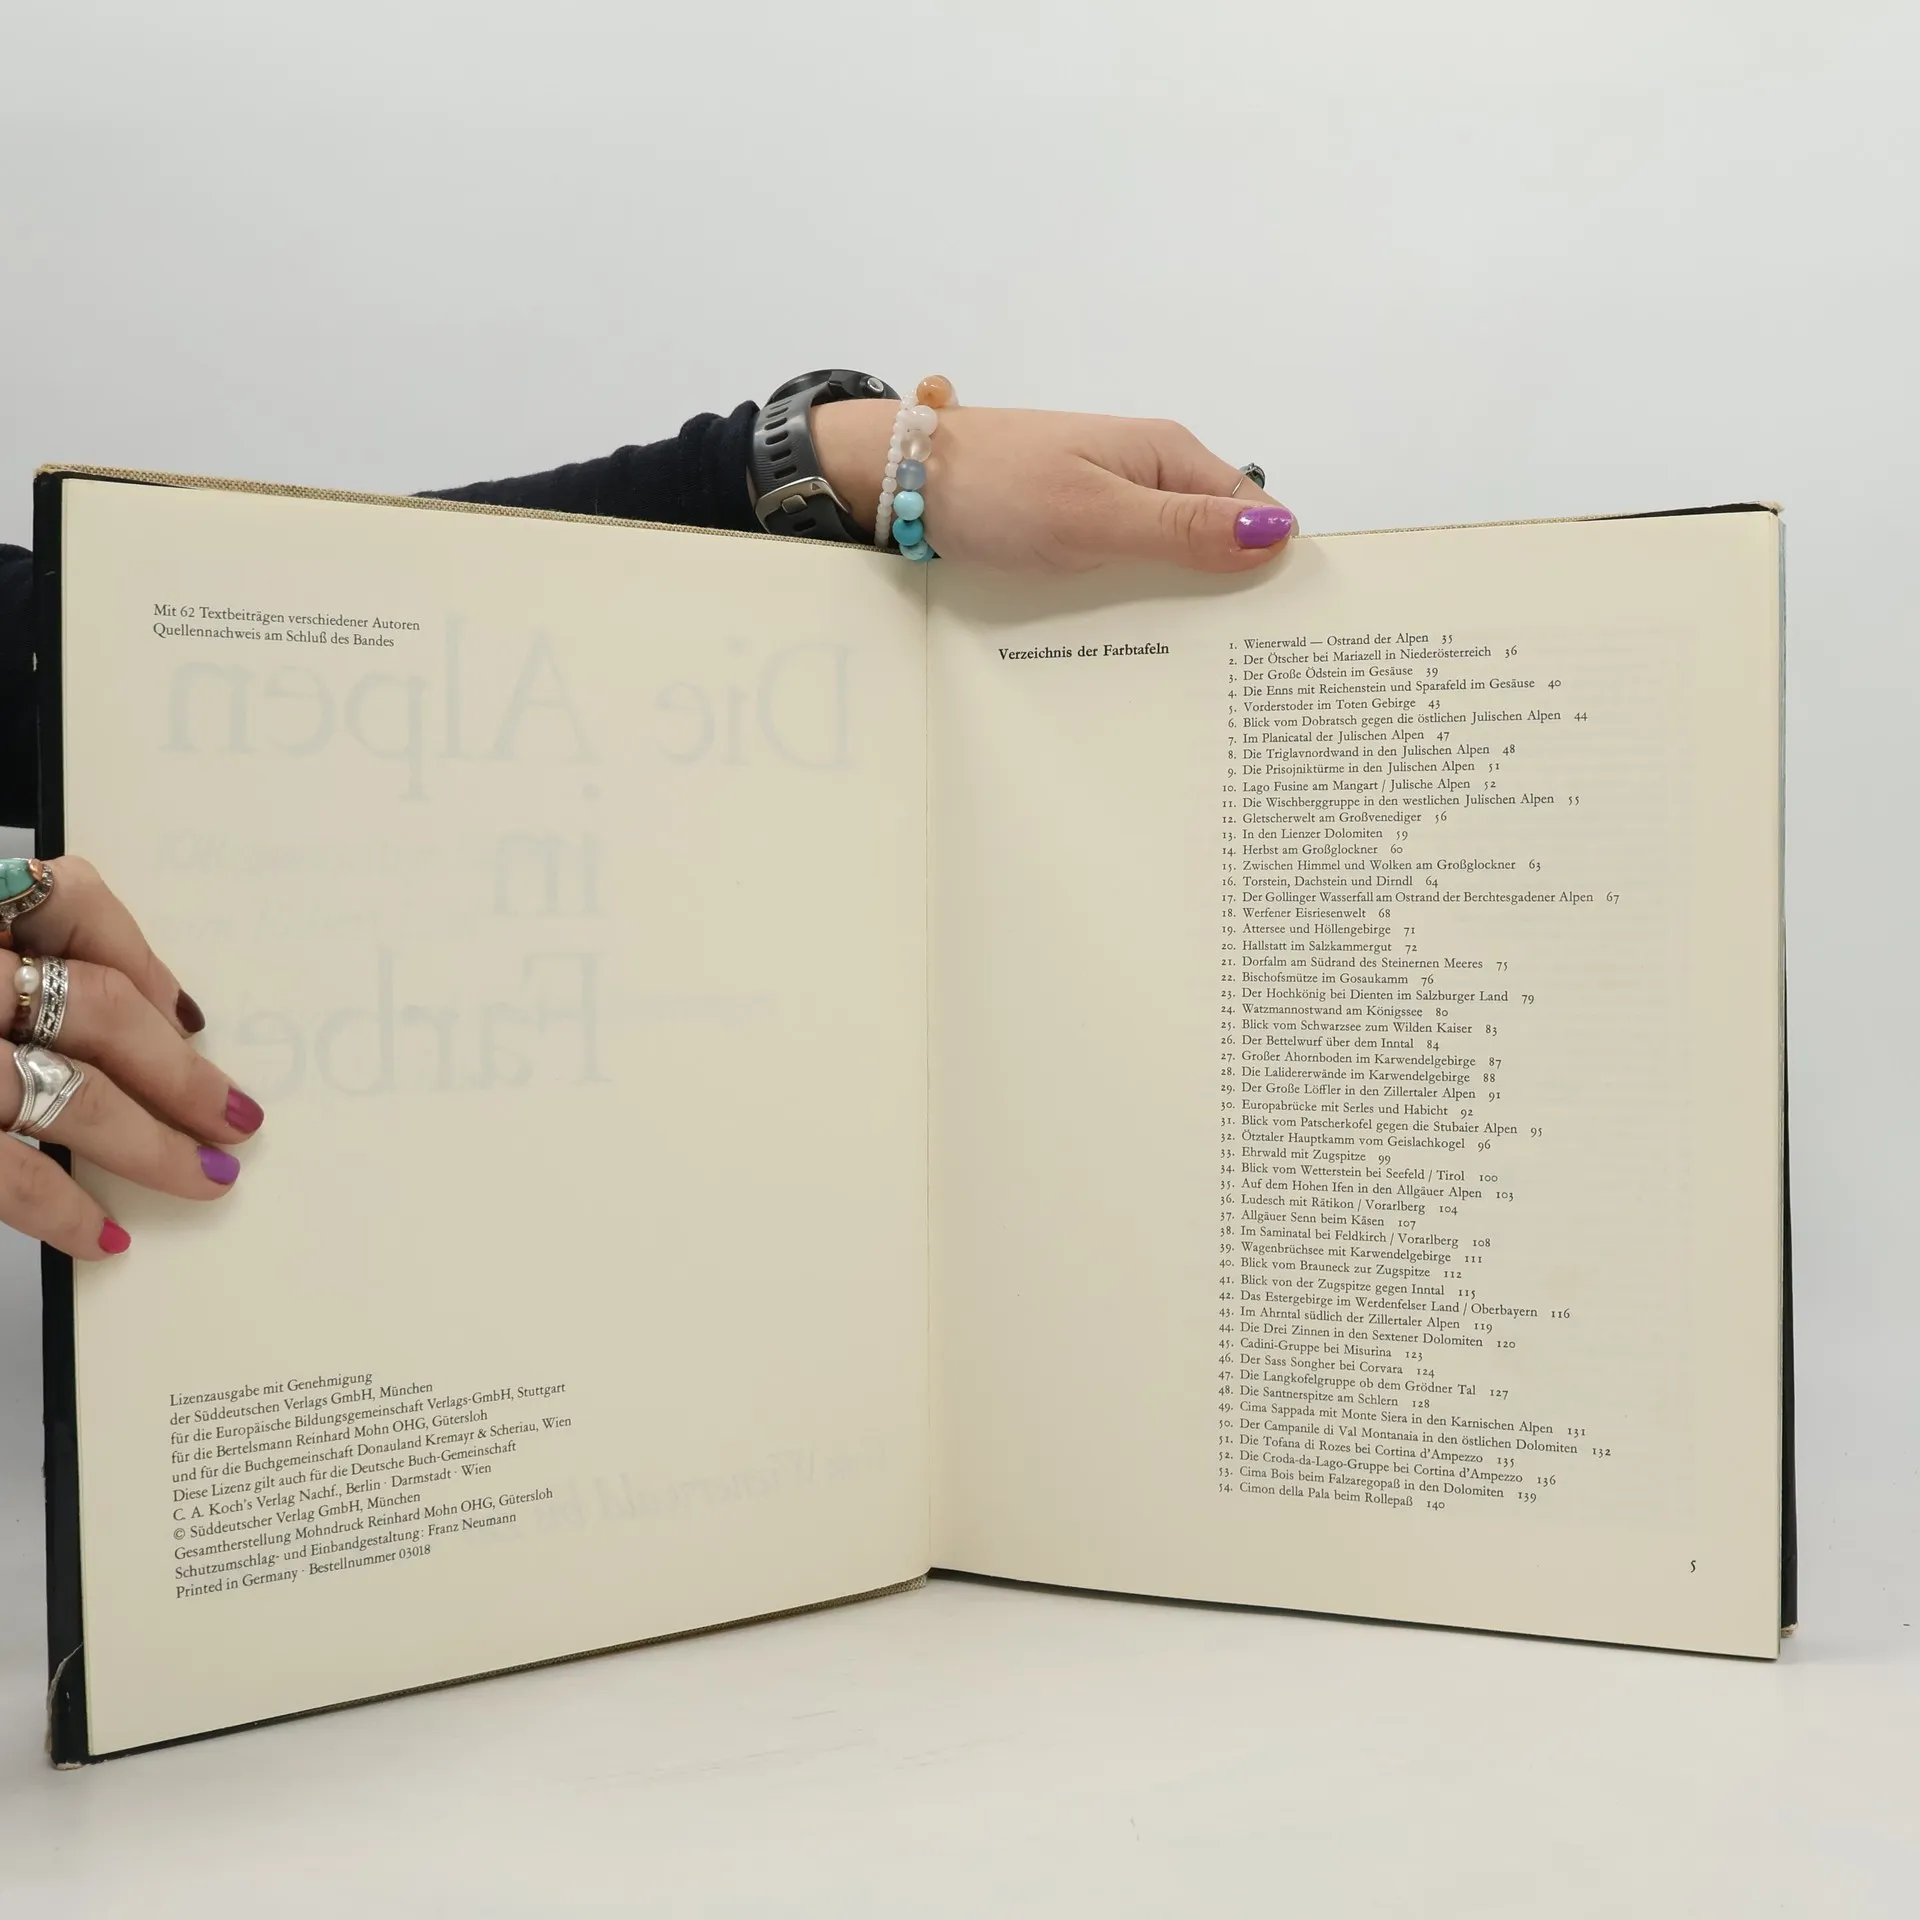 Mit 62 Textbeiträgen verschiedener Autoren
Quellennachweis am Schluß des Bandes
Die Alpen
in
Farbe
Lizenzausgabe mit Genehmigung
der Süddeutschen Verlags GmbH, München
für die Europäische Bildungsgemeinschaft Verlags-GmbH, Stuttgart
für die Bertelsmann Reinhard Mohn OHG, Gütersloh
und für die Buchgemeinschaft Donauland Kremayr & Scheriau, Wien
Diese Lizenz gilt auch für die Deutsche Buch-Gemeinschaft
C. A. Koch's Verlag Nachf., Berlin · Darmstadt · Wien
© Süddeutscher Verlag GmbH, München
Gesamtherstellung Mohndruck Reinhard Mohn OHG, Gütersloh
Schutzumschlag- und Einbandgestaltung: Franz Neumann
Printed in Germany · Bestellnummer 03018
Verzeichnis der Farbtafeln
1. Wienerwald — Ostrand der Alpen 35
2. Der Ötscher bei Mariazell in Niederösterreich 36
3. Der Große Ödstein im Gesäuse 39
4. Die Enns mit Reichenstein und Sparafeld im Gesäuse 40
5. Vorderstoder im Toten Gebirge 43
6. Blick vom Dobratsch gegen die östlichen Julischen Alpen 44
7. Im Planicatal der Julischen Alpen 47
8. Die Triglavnordwand in den Julischen Alpen 48
9. Die Prisojniktürme in den Julischen Alpen 51
10. Lago Fusine am Mangart / Julische Alpen 52
11. Die Wischberggruppe in den westlichen Julischen Alpen 55
12. Gletscherwelt am Großvenediger 56
13. In den Lienzer Dolomiten 59
14. Herbst am Großglockner 60
15. Zwischen Himmel und Wolken am Großglockner 63
16. Torstein, Dachstein und Dirndl 64
17. Der Gollinger Wasserfall am Ostrand der Berchtesgadener Alpen 67
18. Werfener Eisriesenwelt 68
19. Attersee und Höllengebirge 71
20. Hallstatt im Salzkammergut 72
21. Dorfalm am Südrand des Steinernen Meeres 75
22. Bischofsmütze im Gosaukamm 76
23. Der Hochkönig bei Dienten im Salzburger Land 79
24. Watzmannostwand am Königssee 80
25. Blick vom Schwarzsee zum Wilden Kaiser 83
26. Der Bettelwurf über dem Inntal 84
27. Großer Ahornboden im Karwendelgebirge 87
28. Die Lalidererwände im Karwendelgebirge 88
29. Der Große Löffler in den Zillertaler Alpen 91
30. Europabrücke mit Serles und Habicht 92
31. Blick vom Patscherkofel gegen die Stubaier Alpen 95
32. Ötztaler Hauptkamm vom Geislachkogel 96
33. Ehrwald mit Zugspitze 99
34. Blick vom Wetterstein bei Seefeld / Tirol 100
35. Auf dem Hohen Ifen in den Allgäuer Alpen 103
36. Ludesch mit Rätikon / Vorarlberg 104
37. Allgäuer Senn beim Käsen 107
38. Im Saminatal bei Feldkirch / Vorarlberg 108
39. Wagenbrüchsee mit Karwendelgebirge 111
40. Blick vom Brauneck zur Zugspitze 112
41. Blick von der Zugspitze gegen Inntal 115
42. Das Estergebirge im Werdenfelser Land / Oberbayern 116
43. Im Ahrntal südlich der Zillertaler Alpen 119
44. Die Drei Zinnen in den Sextener Dolomiten 120
45. Cadini-Gruppe bei Misurina 123
46. Der Sass Songher bei Corvara 124
47. Die Langkofelgruppe ob dem Grödner Tal 127
48. Die Santnerspitze am Schlern 128
49. Cima Sappada mit Monte Siera in den Karnischen Alpen 131
50. Der Campanile di Val Montanaia in den östlichen Dolomiten 132
51. Die Tofana di Rozes bei Cortina d'Ampezzo 135
52. Die Croda-da-Lago-Gruppe bei Cortina d'Ampezzo 136
53. Cima Bois beim Falzaregopaß in den Dolomiten 139
54. Cimon della Pala beim Rollepaß 140
5